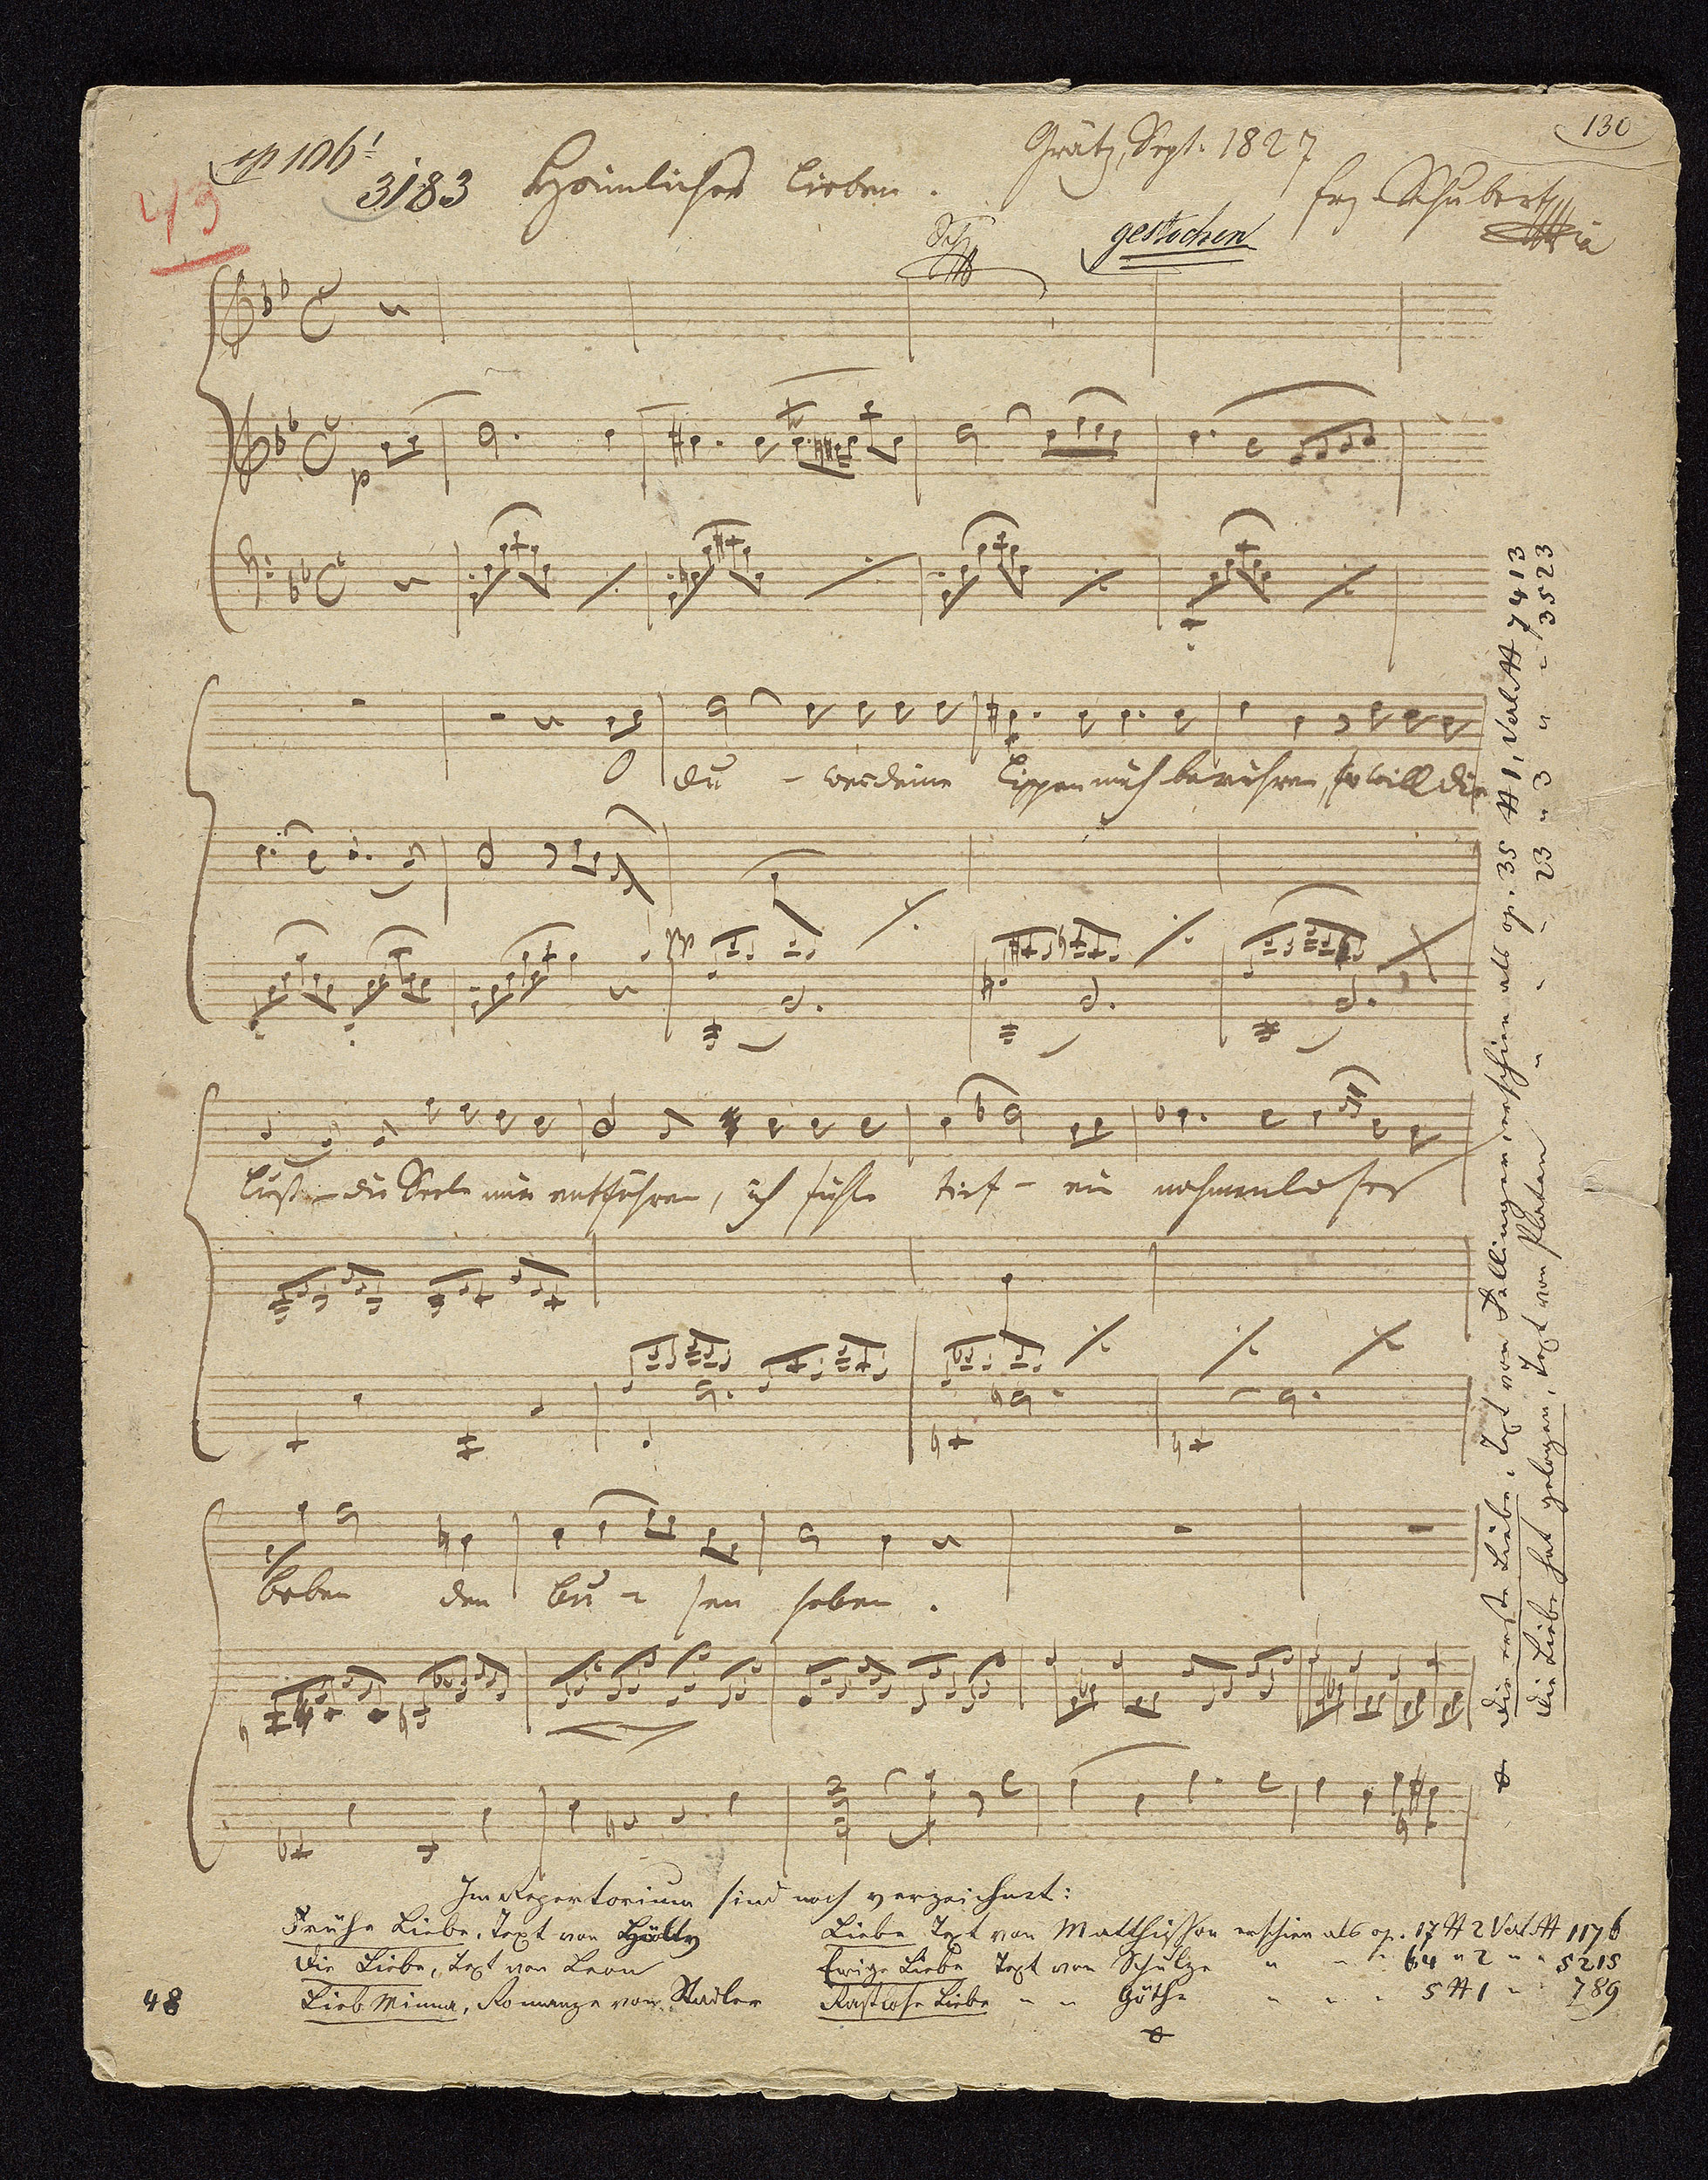 op 106¹
Grätz, Sept. 1827
130
49
3183 Heimliches Lieben.
frz. Schubert
gestochen
p
O du - wen deine Lippen mich berühren, so will die
pp
Lust - die Seele mir entführen, ich fühle tief - ein nahmenloses
beben den bu - sen heben.
Im Repertorium sind noch verzeichnet:
Frühe Liebe, Text von Hölty
Die Liebe, Text von Leon
Lieb Minna, Romanze von Stadler
Liebe Text von Matthisson erschien als op. 17 # 2 Verl # 1176
Ewige Liebe Text von Schulze " " " 64 " 2 " " 5215
Rastlose Liebe " " Göthe " " " 5 # 1 " 789
48
Die erste Liebe, Text von Fellinger, erschien als op. 35 # 1, Verl # 7413
Die Liebe hat gelogen, Text von Platen " " " 23 " 3 " " 3523